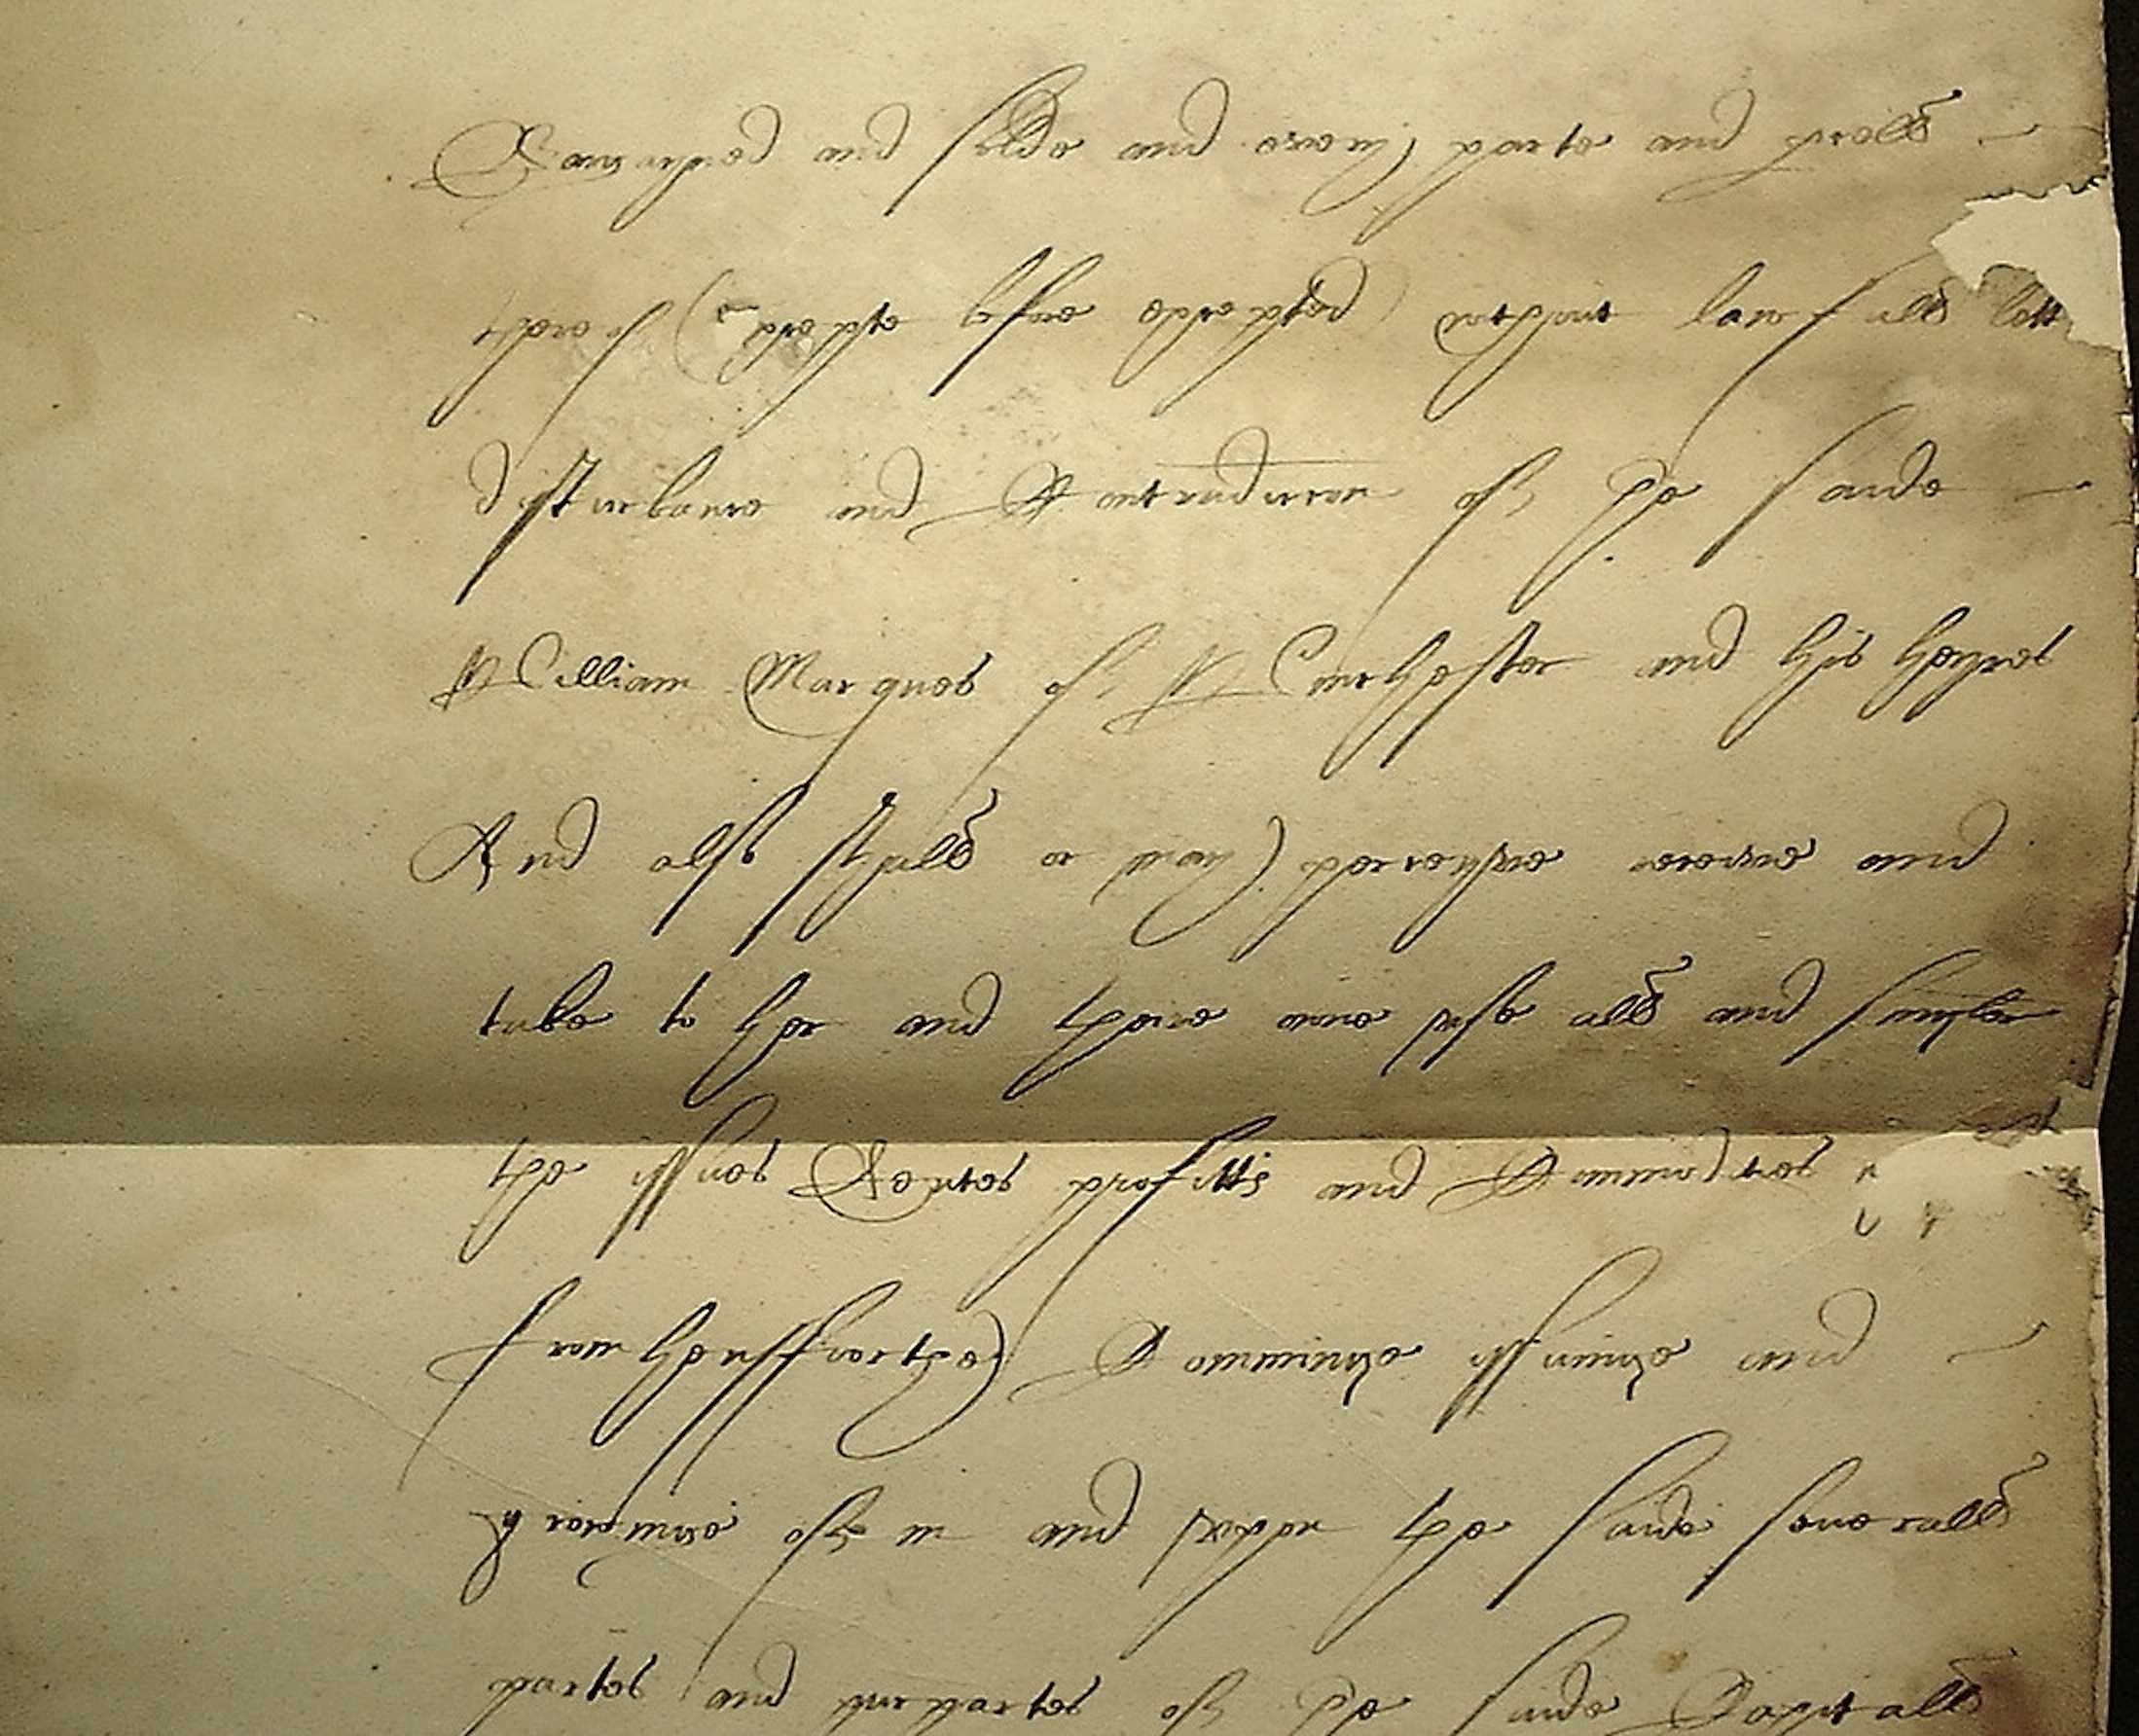 Bargayned and solde and every parte and p'cell
thereof (excepte before excepted) without lawfull lett
disturbance and Contradiccon of the saide
William Marques of Winchester and his heyres
And also shall or may perceyve receive and
take to her and theire owne use all and singler
the issues Rentes profitts and Commodites
from hensfoorthe Comminge issuinge and
growinge of in and uppon the saide severall
partes and purpartes of the saide Capitall